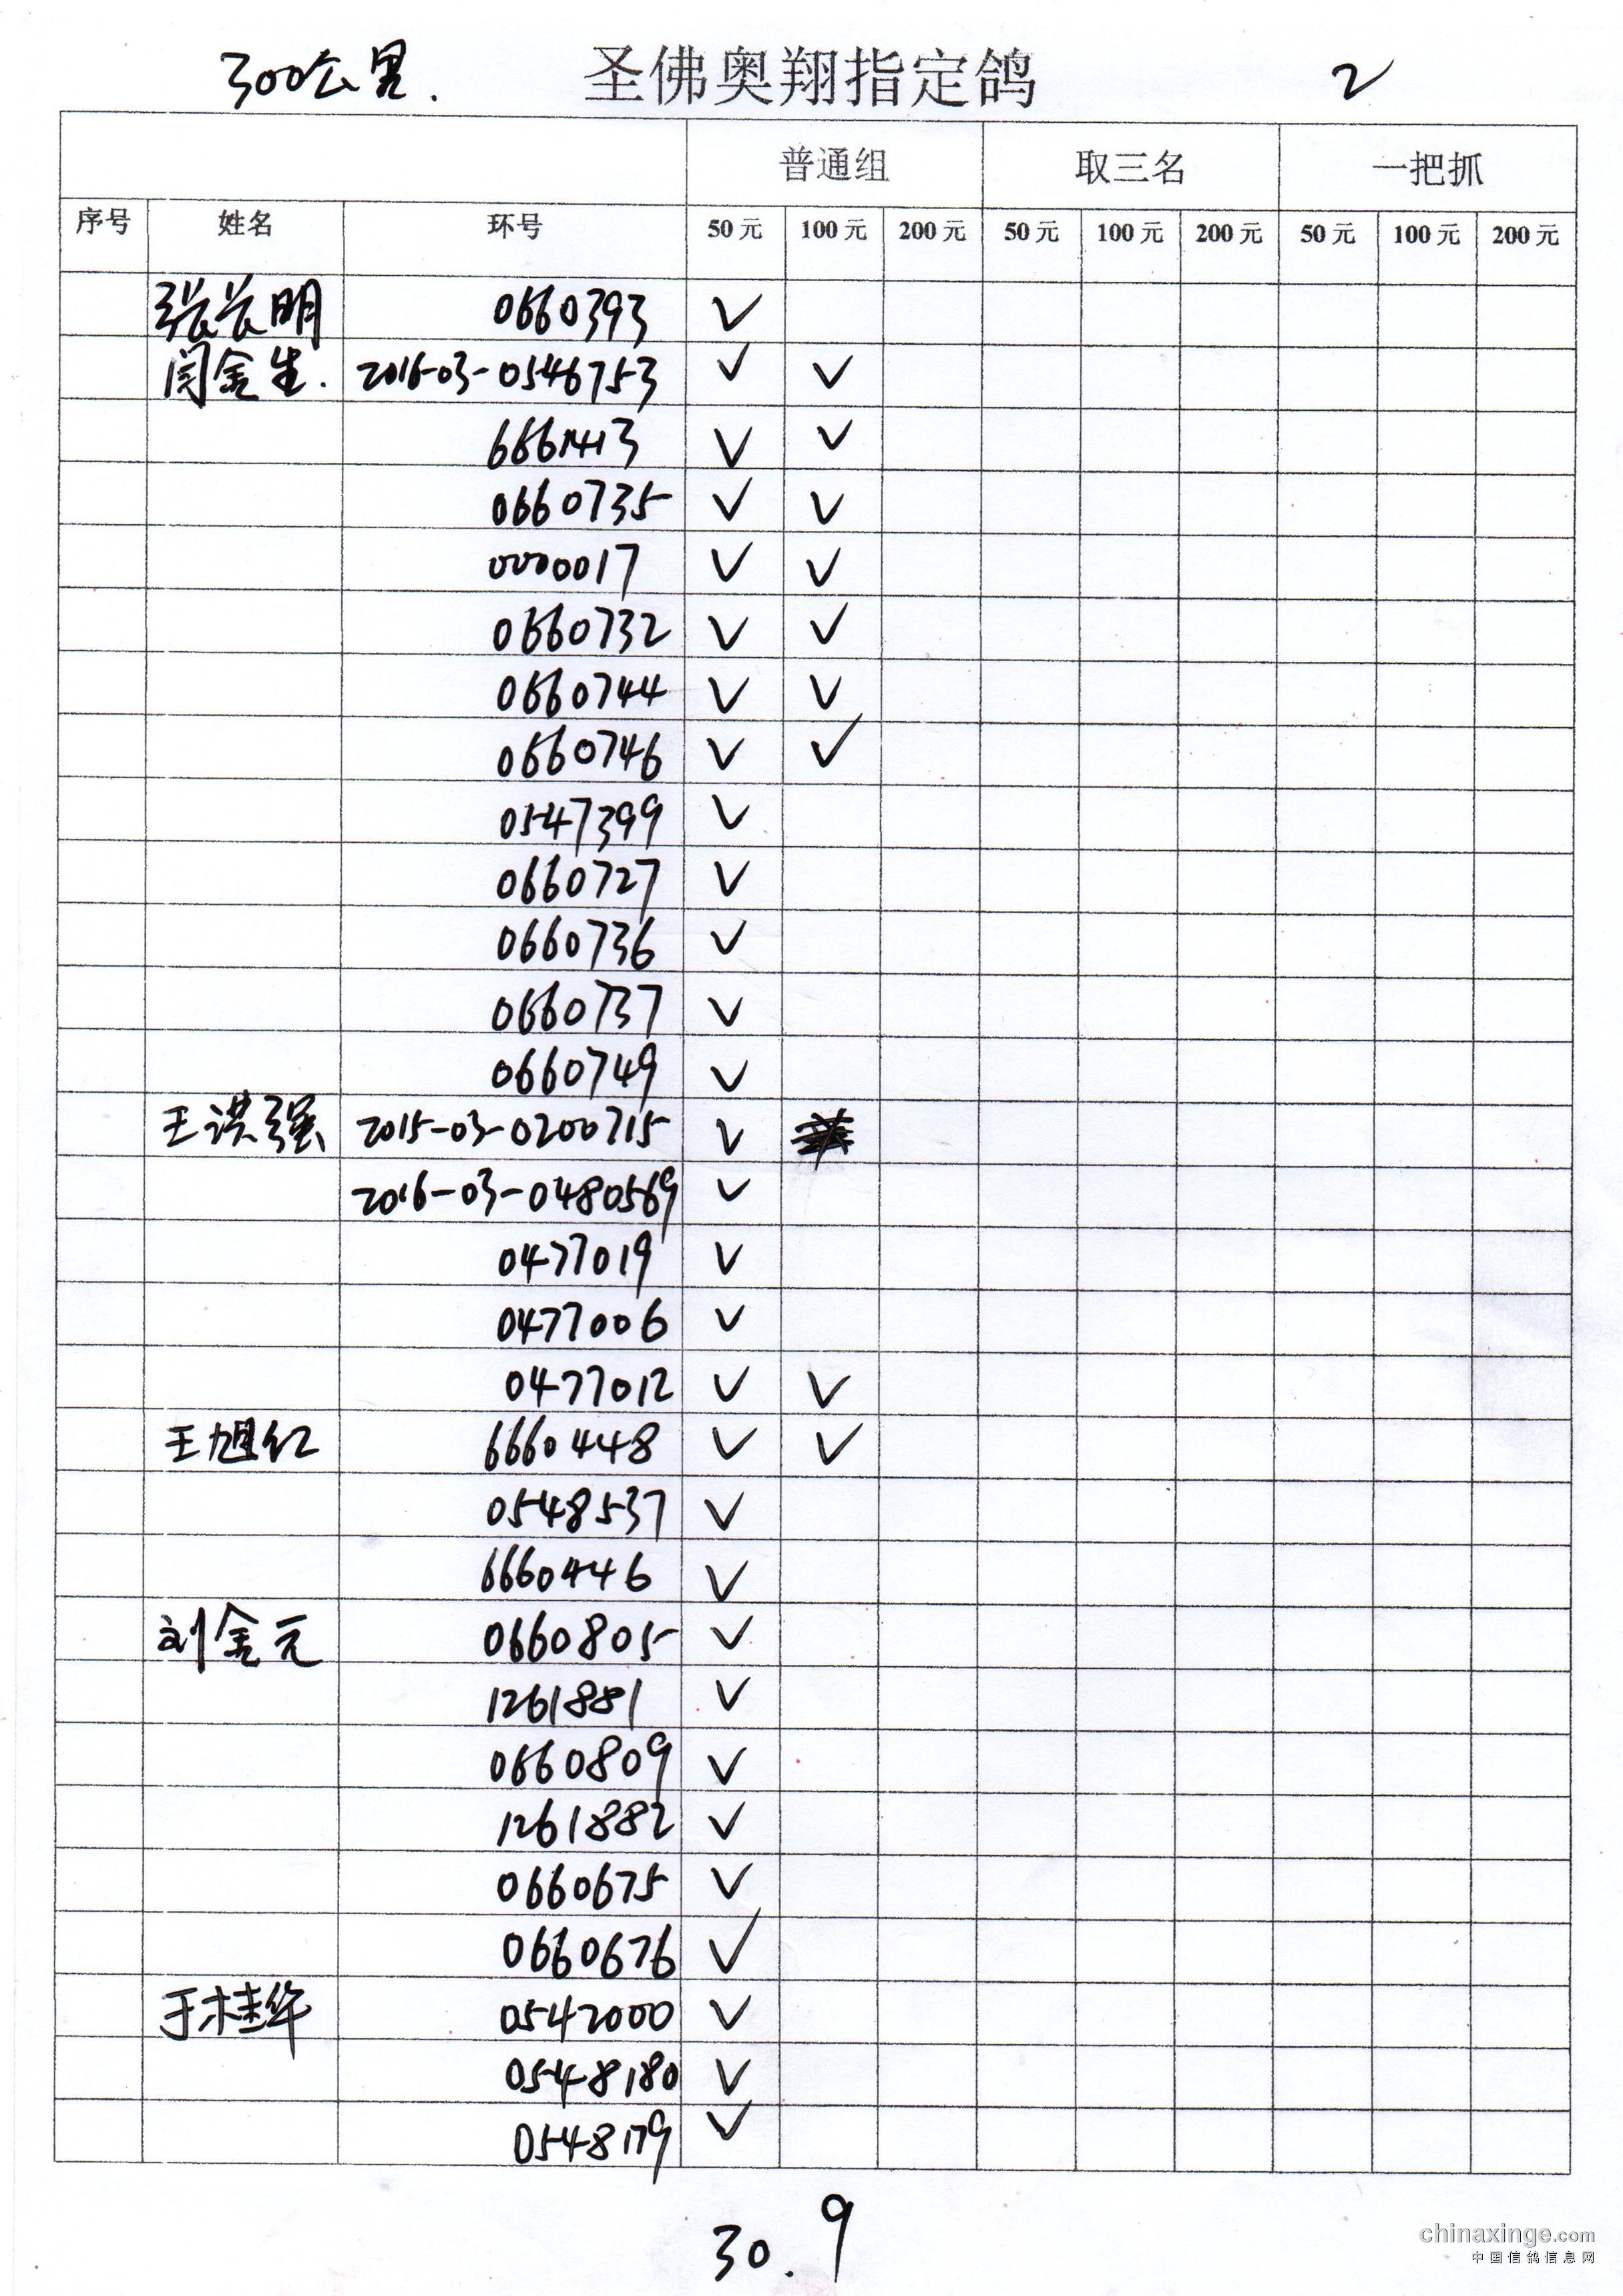 300公里. 圣佛奥翔指定鸽 2
普通组 取三名 一把抓
序号 姓名 环号 50元 100元 200元 50元 100元 200元 50元 100元 200元
张长明 0660393 ✓
闫金生. 2016-03-0546753 ✓ ✓
6661413 ✓ ✓
0660735 ✓ ✓
0000017 ✓ ✓
0660732 ✓ ✓
0660744 ✓ ✓
0660746 ✓ ✓
0547399 ✓
0660727 ✓
0660736 ✓
0660737 ✓
0660749 ✓
王洪强 2015-03-0200715 ✓
2016-03-0480569 ✓
0477019 ✓
0477006 ✓
0477012 ✓ ✓
王旭红 6660448 ✓ ✓
0548537 ✓
6660446 ✓
刘金元 0660805 ✓
1261881 ✓
0660809 ✓
1261882 ✓
0660675 ✓
0660676 ✓
于桂华 0542000 ✓
0548180 ✓
0548179 ✓
30. 9
chinaxinge.com
中国信鸽信息网